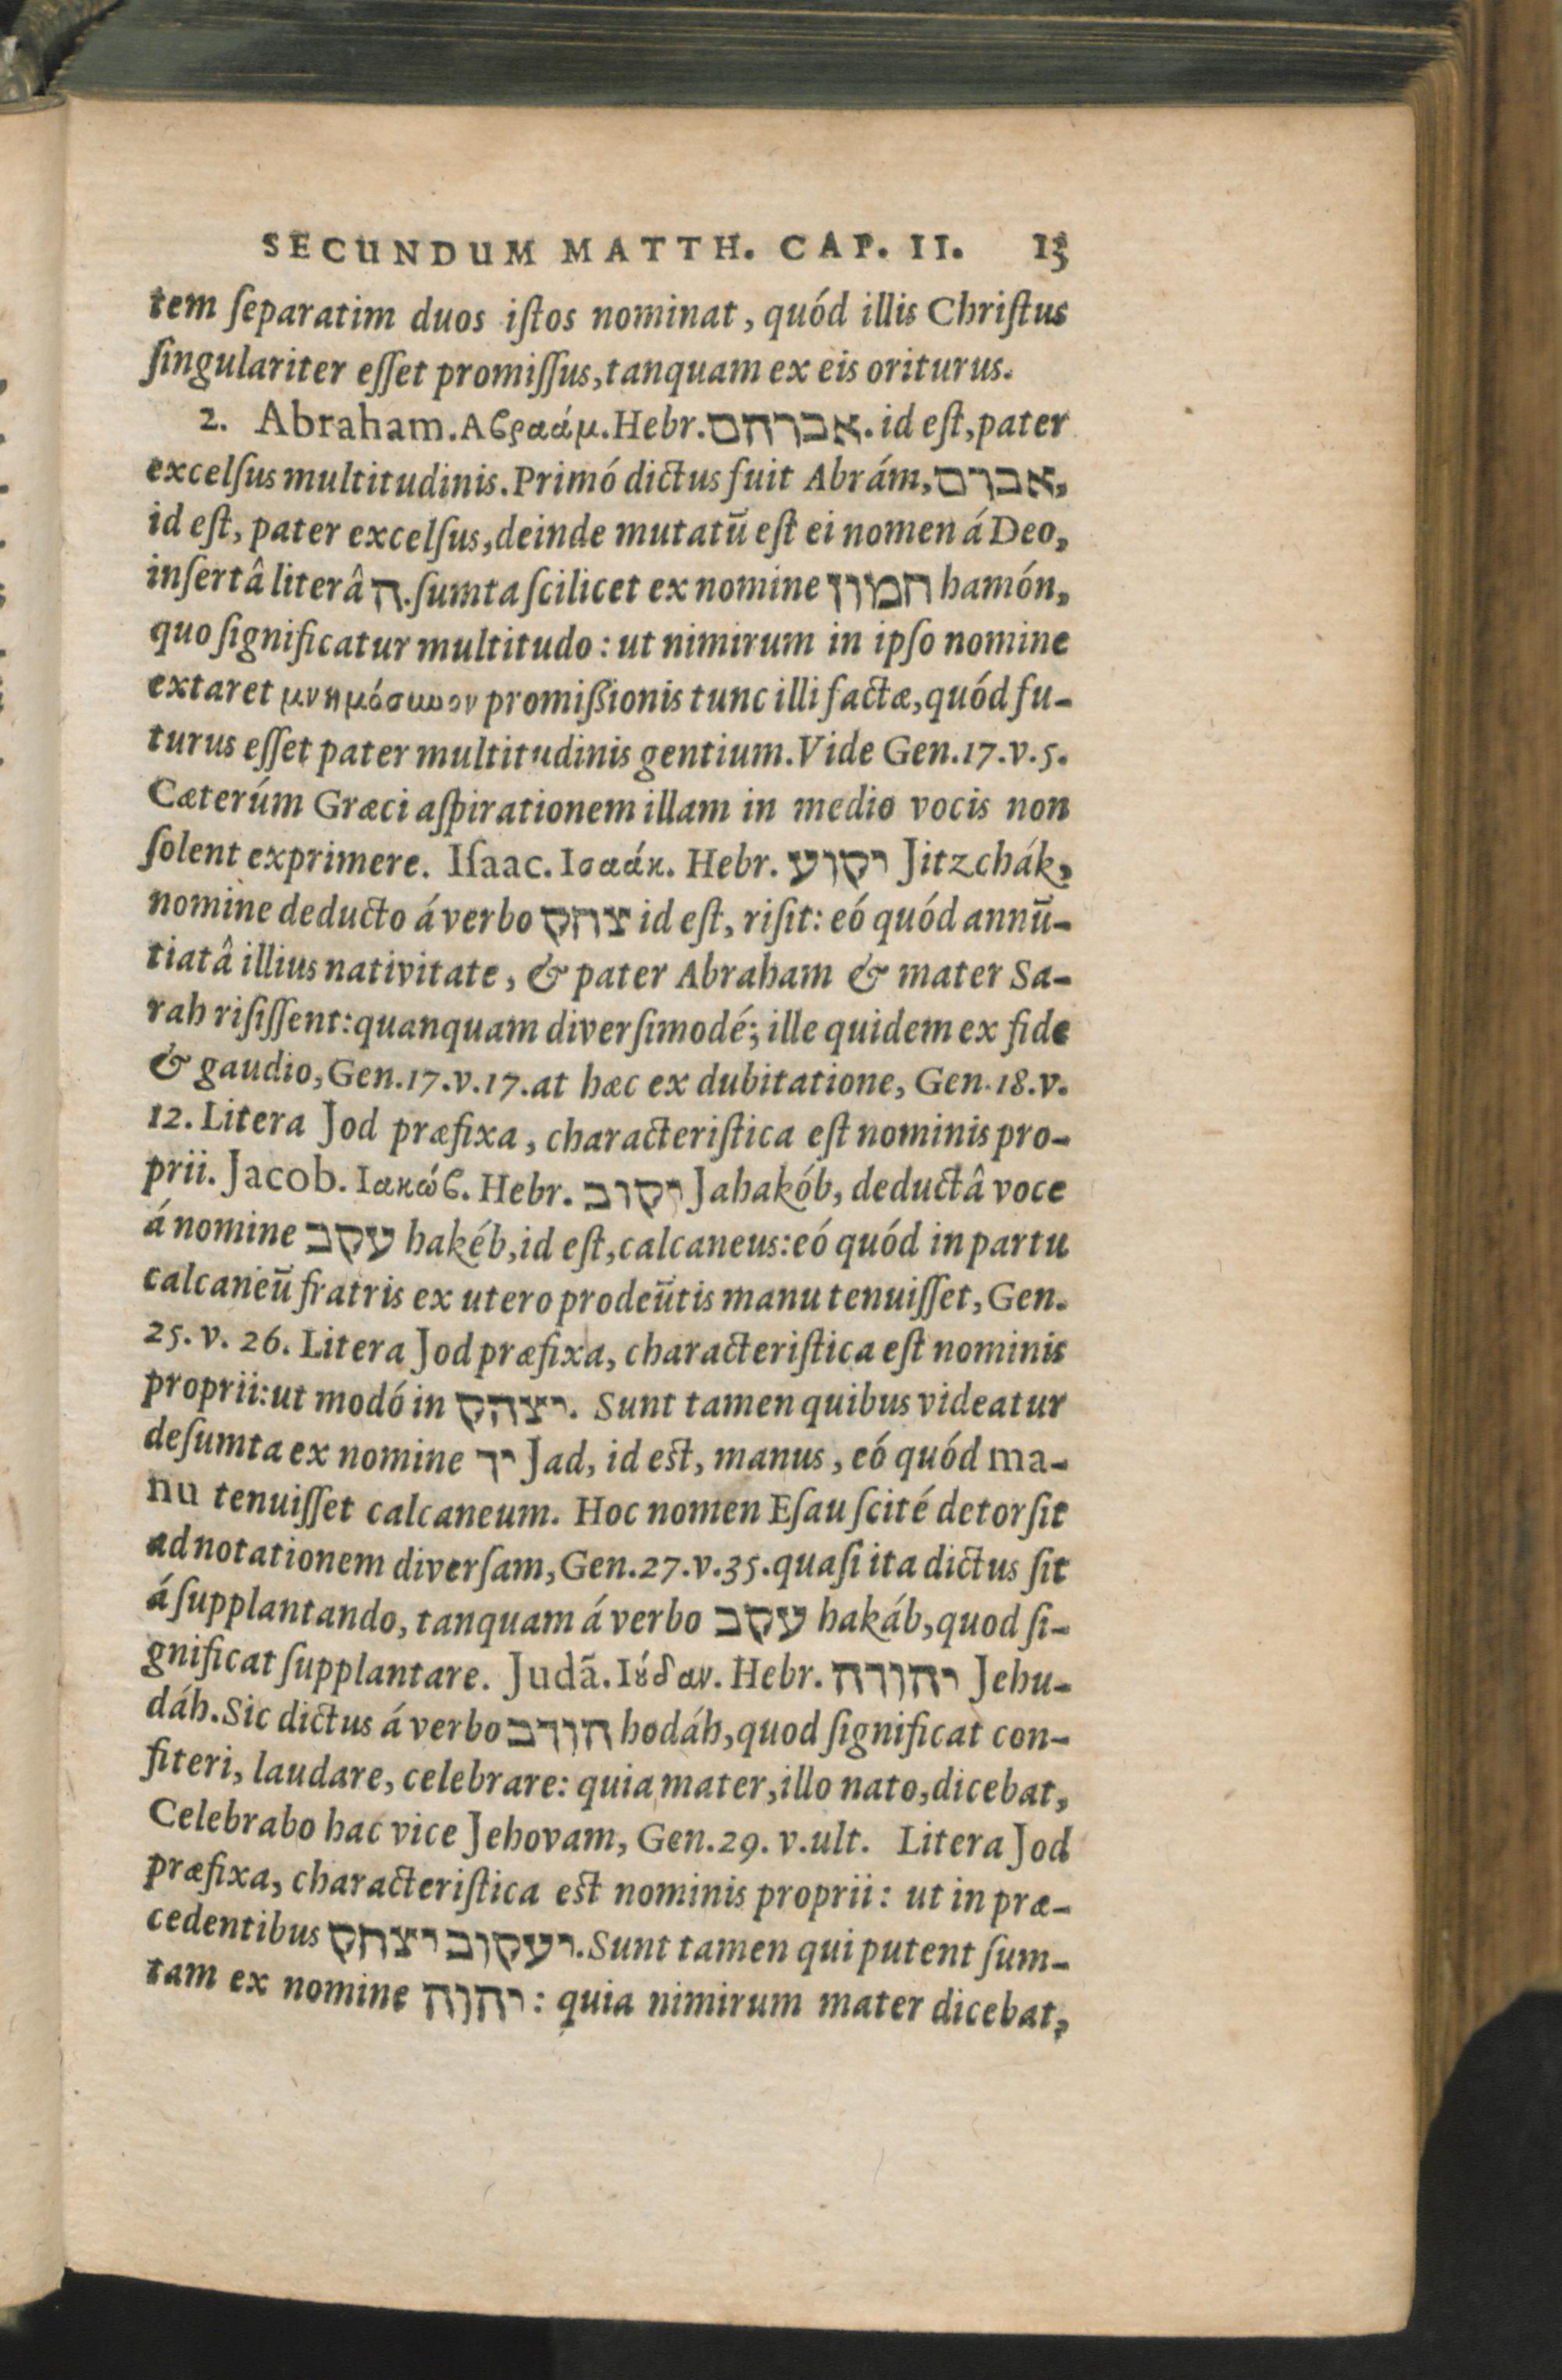 SECUNDUM MATTH. CAP. II. 13
tem ſeparatim duos iſtos nominat, quód illis Chriſtus
ſingulariter eſſet promiſſus, tanquam ex eis oriturus.
2. Abraham. Αϐρααάμ. Hebr. אברהם. id eſt, pater
excelſus multitudinis. Primó dictus fuit Abrám, אברם,
id eſt, pater excelſus, deinde mutatū eſt ei nomen á Deo,
inſertâ literâ ה. ſumta ſcilicet ex nomine חמון hamón,
quo ſignificatur multitudo: ut nimirum in ipſo nomine
extaret μνημόσυνον promiſsionis tunc illi factæ, quód fu-
turus eſſet pater multitudinis gentium. Vide Gen. 17. v. 5.
Cæterúm Græci aſpirationem illam in medio vocis non
ſolent exprimere. Iſaac. Ισαάκ. Hebr. יקוע Jitzchák,
nomine deducto á verbo צחק id eſt, riſit: eó quód annū-
tiatâ illius nativitate, & pater Abraham & mater Sa-
rah riſiſſent: quanquam diverſimodé; ille quidem ex fide
& gaudio, Gen. 17. v. 17. at hæc ex dubitatione, Gen. 18. v.
12. Litera Jod præfixa, characteriſtica eſt nominis pro-
prii. Jacob. Ιακώϐ. Hebr. יקוב Jahakób, deductâ voce
á nomine עקב hakéb, id eſt, calcaneus: eó quód in partu
calcaneū fratris ex utero prodeūtis manu tenuiſſet, Gen.
25. v. 26. Litera Jod præfixa, characteriſtica eſt nominis
proprii: ut modó in יצהק. Sunt tamen quibus videatur
deſumta ex nomine יד Jad, id eſt, manus, eó quód ma-
nu tenuiſſet calcaneum. Hoc nomen Eſau ſcité detorſit
ad notationem diverſam, Gen. 27. v. 35. quaſi ita dictus ſit
á ſupplantando, tanquam á verbo עקב hakáb, quod ſi-
gnificat ſupplantare. Judã. Ιȣ́δαν. Hebr. יחורה Jehu-
dáh. Sic dictus á verbo חורב hodáh, quod ſignificat con-
fiteri, laudare, celebrare: quia mater, illo nato, dicebat,
Celebrabo hac vice Jehovam, Gen. 29. v. ult. Litera Jod
præfixa, characteriſtica eſt nominis proprii: ut in præ-
cedentibus יעקוב יצחק. Sunt tamen qui putent ſum-
tam ex nomine יחוה: quia nimirum mater dicebat,